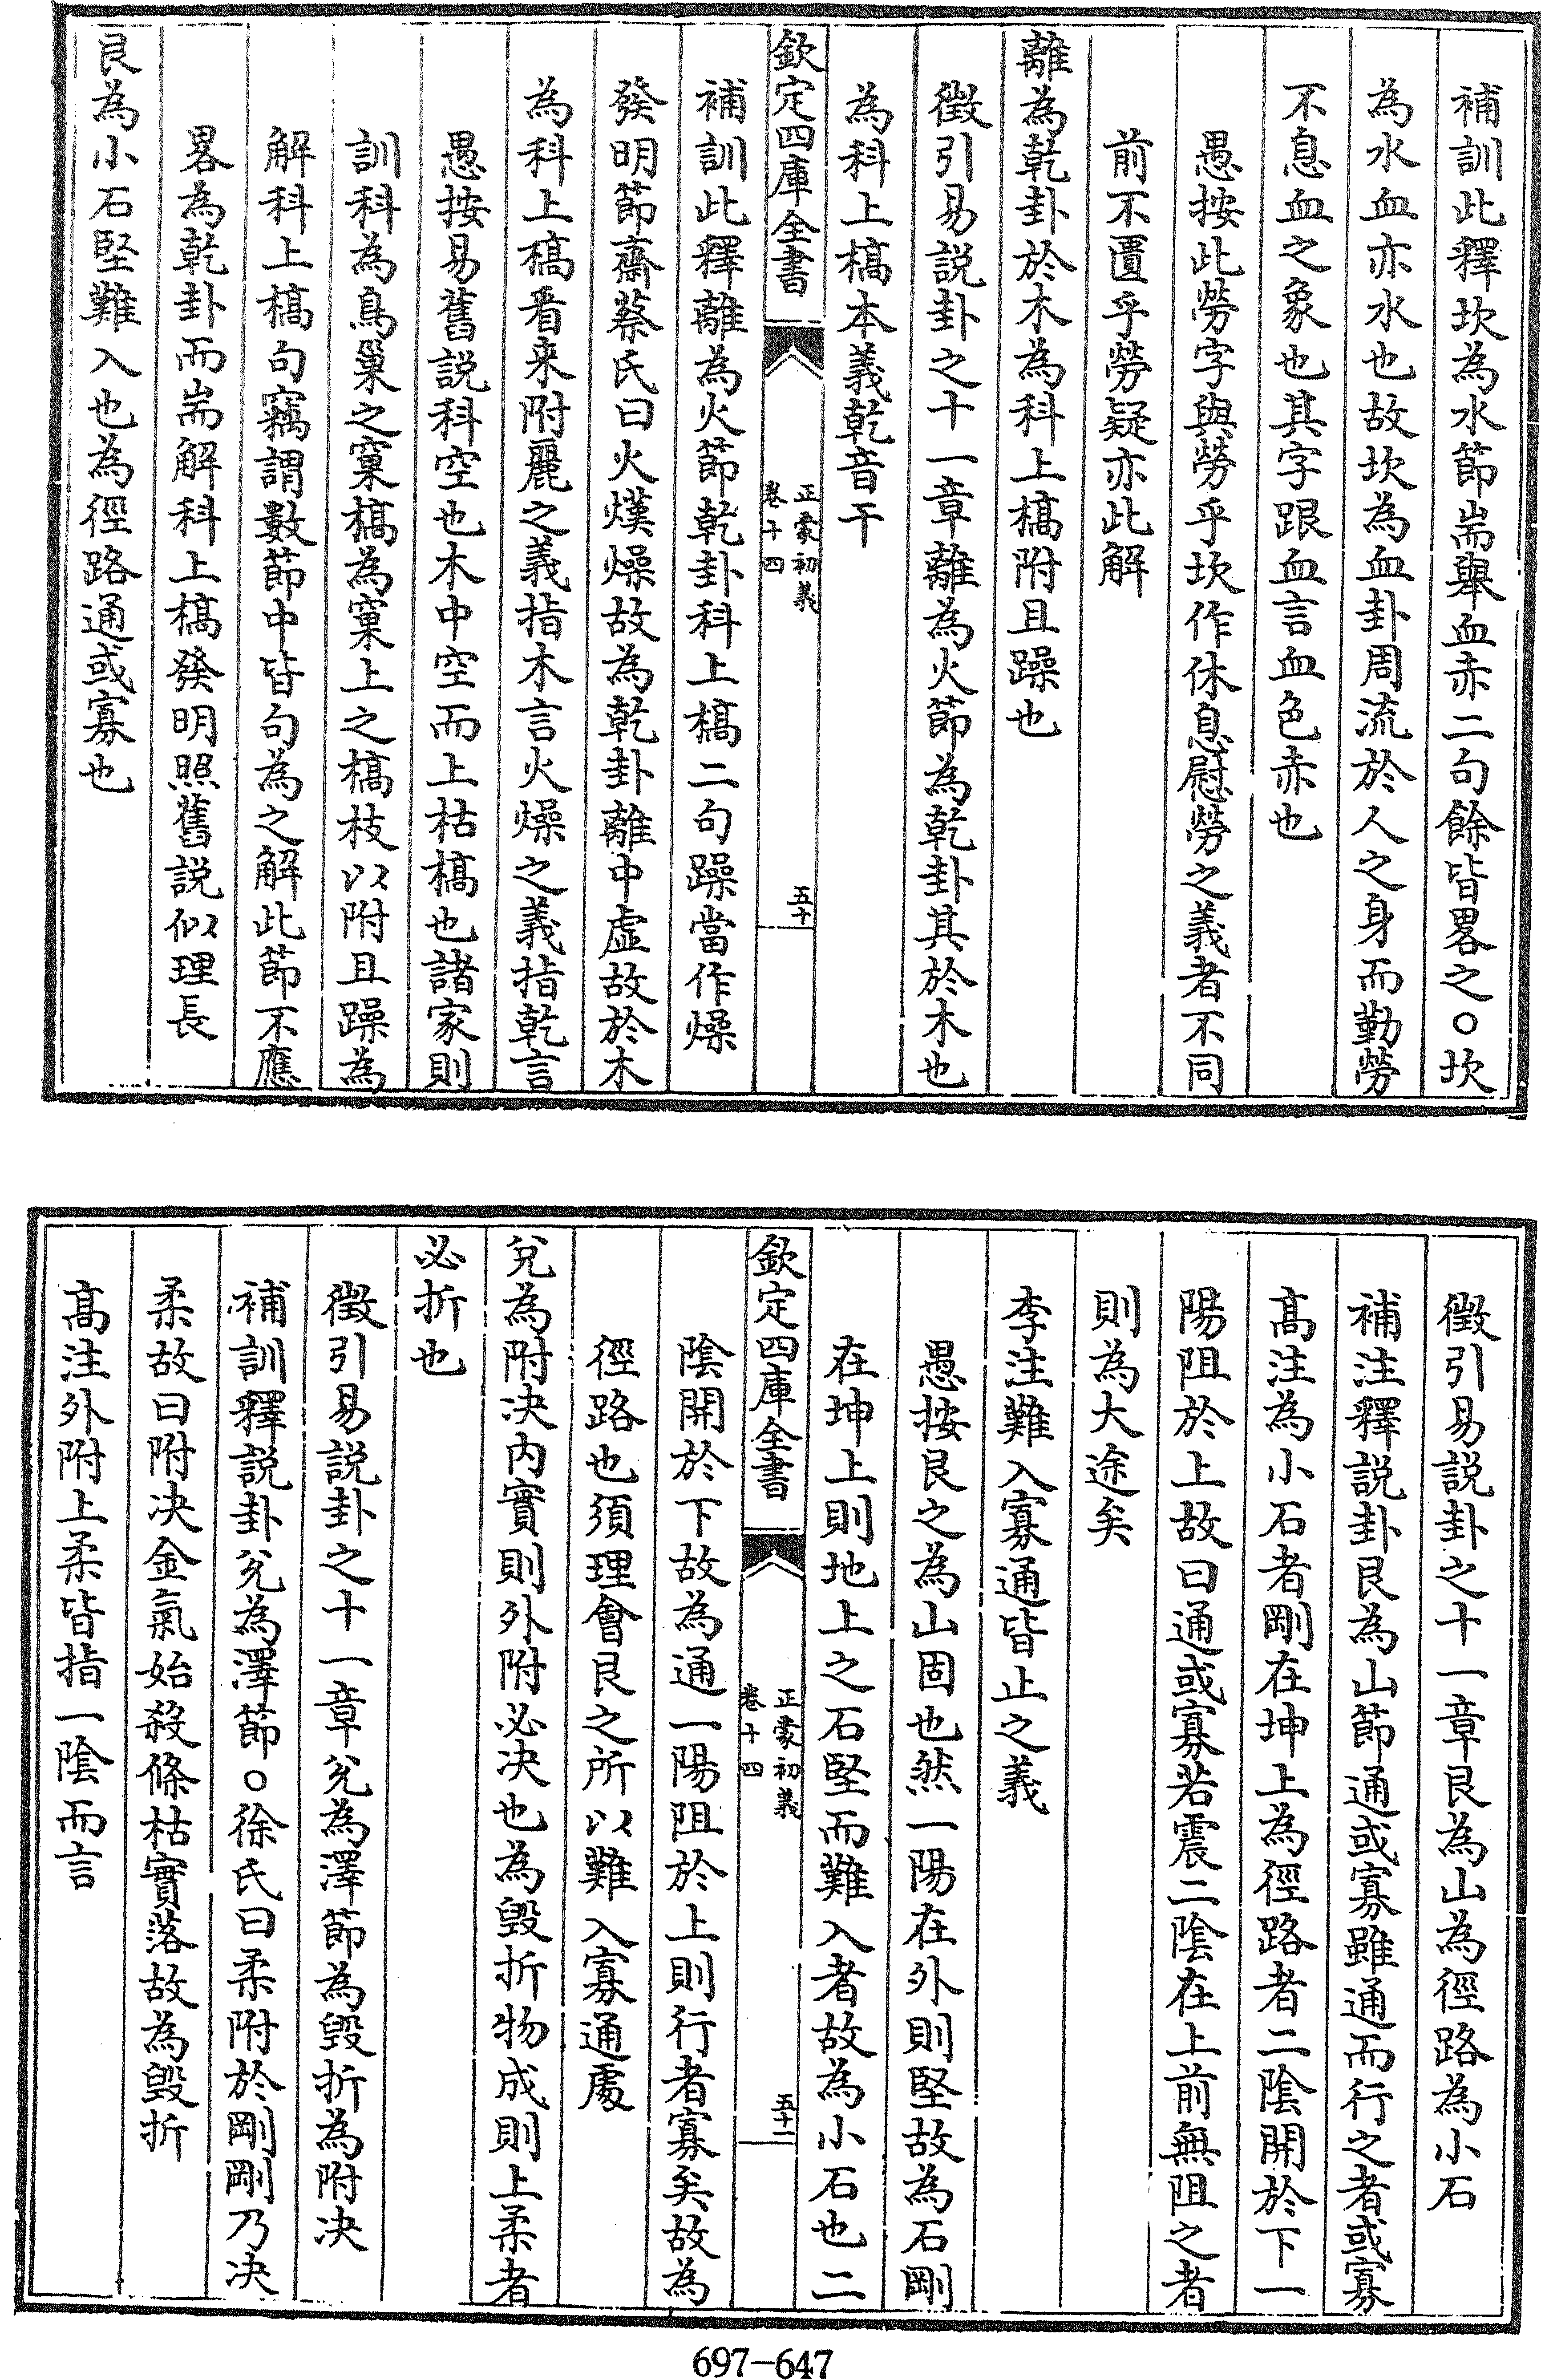 補訓此釋坎為水節耑舉血赤二句餘皆畧之○坎
為水血亦水也故坎為血卦周流於人之身而勤勞
不息血之象也其字跟血言血色赤也
愚按此勞字與勞乎坎作休息慰勞之義者不同
前不匱乎勞疑亦此解
離為乾卦於木為科上槁附且躁也
徵引易說卦之十一章離為火節為乾卦其於木也
為科上槁本義乾音干
欽定四庫全書
正蒙初義
卷十四
五十
補訓此釋離為火節乾卦科上槁二句躁當作燥
發明節齋蔡氏曰火熯燥故為乾卦離中虛故於木
為科上槁看来附麗之義指木言火燥之義指乾言
愚按易舊說科空也木中空而上枯槁也諸家則
訓科為鳥巢之窠槁為窠上之槁枝以附且躁為
解科上槁句竊謂數節中皆句為之解此節不應
畧為乾卦而耑解科上槁發明照舊說似理長
艮為小石堅難入也為徑路通或寡也
徵引易說卦之十一章艮為山為徑路為小石
補注釋說卦艮為山節通或寡雖通而行之者或寡
高注為小石者剛在坤上為徑路者二陰開於下一
陽阻於上故曰通或寡若震二陰在上前無阻之者
則為大途矣
李注難入寡通皆止之義
愚按艮之為山固也然一陽在外則堅故為石剛
在坤上則地上之石堅而難入者故為小石也二
欽定四庫全書
正蒙初義
卷十四
五十一
陰開於下故為通一陽阻於上則行者寡矣故為
徑路也須理會艮之所以難入寡通處
兌為附決內實則外附必決也為毀折物成則上柔者
必折也
徵引易說卦之十一章兌為澤節為毀折為附決
補訓釋說卦兌為澤節○徐氏曰柔附於剛剛乃決
柔故曰附決金氣始殺條枯實落故為毀折
高注外附上柔皆指一陰而言
697-647